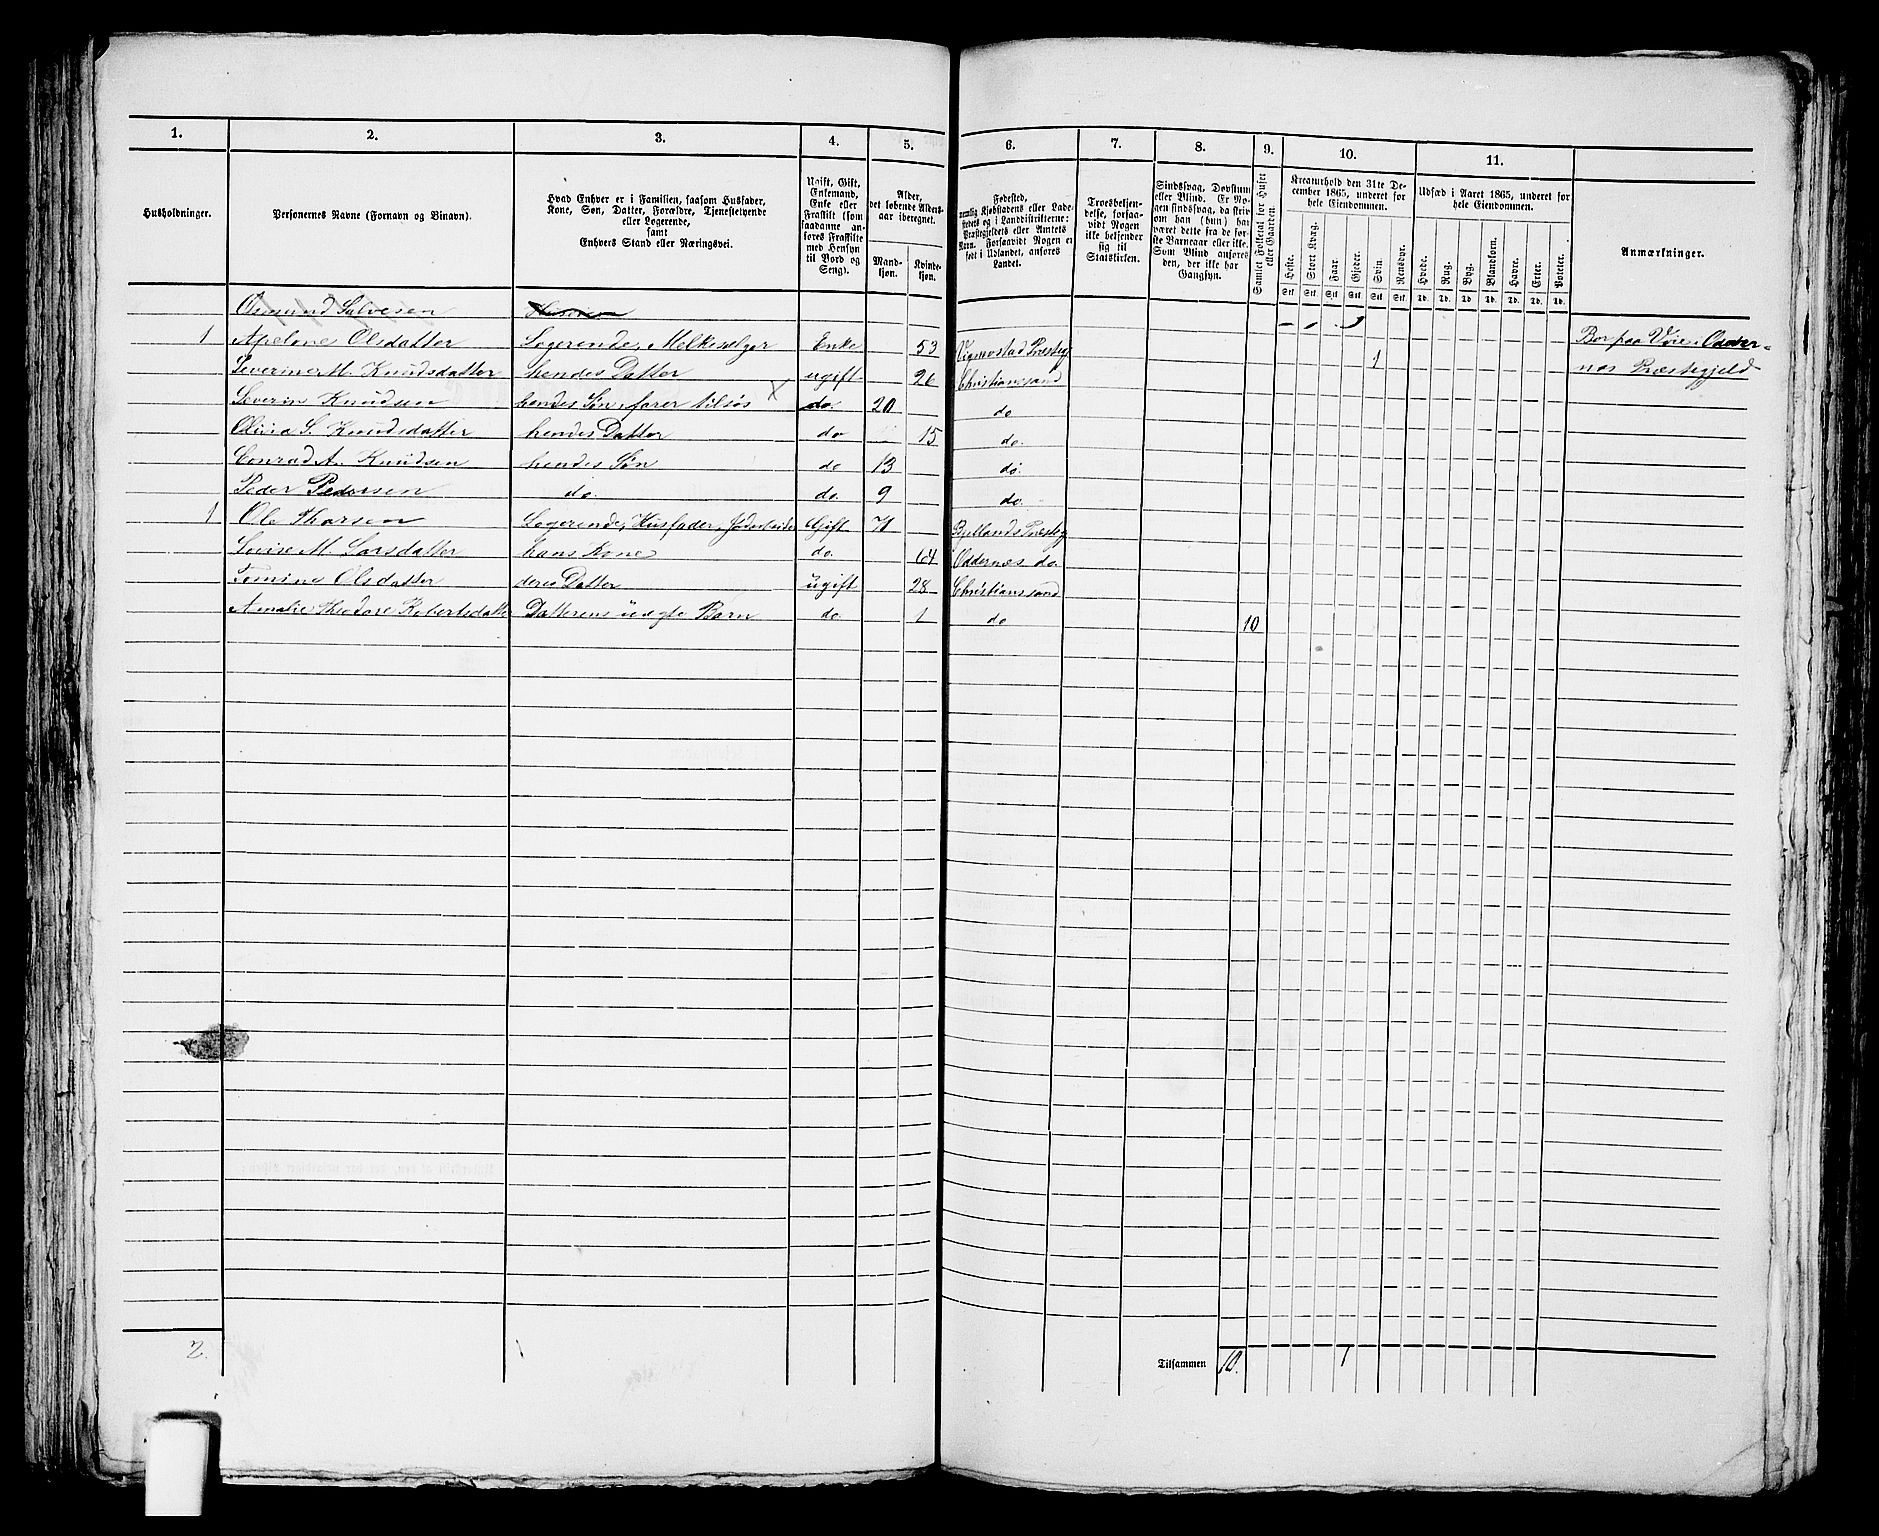 1. 2. 3. 4. 5. 6. 7. 8. 9. 10. 11.
Husholdninger.
Personernes Navne (Fornavn og Binavn).
Hvad Enhver er i Familien, saasom Husfader,
Kone, Søn, Datter, Forældre, Tjenestetyende
eller Logerende,
samt
Enhvers Stand eller Næringsvei.
Ugift, Gift,
Enkemand,
Enke eller
Fraskilt (som
saadanne an-
føres Fraskilte
med Hensyn
til Bord og
Seng).
Alder,
det løbende Alders-
aar iberegnet.
Mand-
kjøn.
Kvinde-
kjøn.
Fødested,
nemlig Kjøbstadens eller Lade-
stedets og i Landdistrikterne:
Præstegjeldets eller Amtets
Navn. Forsaavidt Nogen er
født i Udlandet, anføres
Landet.
Troesbekjen-
delse, forsaa-
vidt Nogen
ikke bekjender
sig til
Statskirken.
Sindssvag, Døvstum
eller Blind. Er No-
gen sindssvag, da skriv
om han (hun) har
været dette fra de før-
ste Barneaar eller ikke.
Som Blind anføres
den, der ikke har
Gangsyn.
Samlet Folketal for Huset
eller Gaarden.
Kreaturhold den 31te De-
cember 1865, underet for
hele Eiendommen.
Heste. Stort Kvæg. Faar. Gjeder. Svin. Rensdyr.
Stk. Stk. Stk. Stk. Stk. Stk.
Udsæd i Aaret 1865, underet for
hele Eiendommen.
Hvede. Rug. Byg. Blandkorn. Havre. Erter. Poteter.
Td. Td. Td. Td. Td. Td. Td.
Anmærkninger.
Osmund Salvesen
1 Apelone Olsdatter Logerende, Melkesælger Enke 53 Vigmostad Præsteg Bor paa Vøie, Odder-
Severine M. Knudsdatter hendes Datter ugift 26 Christianssand 1 nes Præstegjeld
Severin Knudsen hendes Søn, farer tilsøs X do. 20 do
Olivia S. Knudsdatter hendes Datter do 15 do.
Conrad A. Knudsen hendes Søn do 13 do.
Peder Pedersen do. do. 9 do.
1 Ole Thorsen Logerende, Husfader, Jordarbeider Gift 71 Bjellands Præsteg
Lovise M. Larsdatter hans Kone do. 64 Oddernæs do.
Tomine Olsdatter deres Datter ugift 28 Christianssand
Amalie Theodore Robertsdatter Datterens uægte Barn do. 1 do 10
2. Tilsammen 10. 1